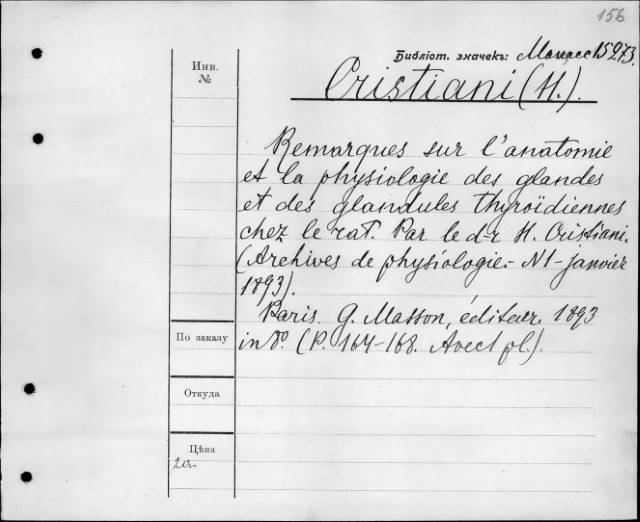 156
Библіот. значекъ: 15273.
Инв.
№
Cristiani (H.).
Remarques sur l'anatomie
et la physiologie des glandes
et des glandules thyroïdiennes
chez le rat. Par le d-r H. Cristiani.
(Archives de physiologie.- N1- janvier
1893).
Paris. G. Masson, éditeur. 1893
in 8°. (P. 164-168. Avec 1 pl.).
По заказу
Откуда
Цѣна